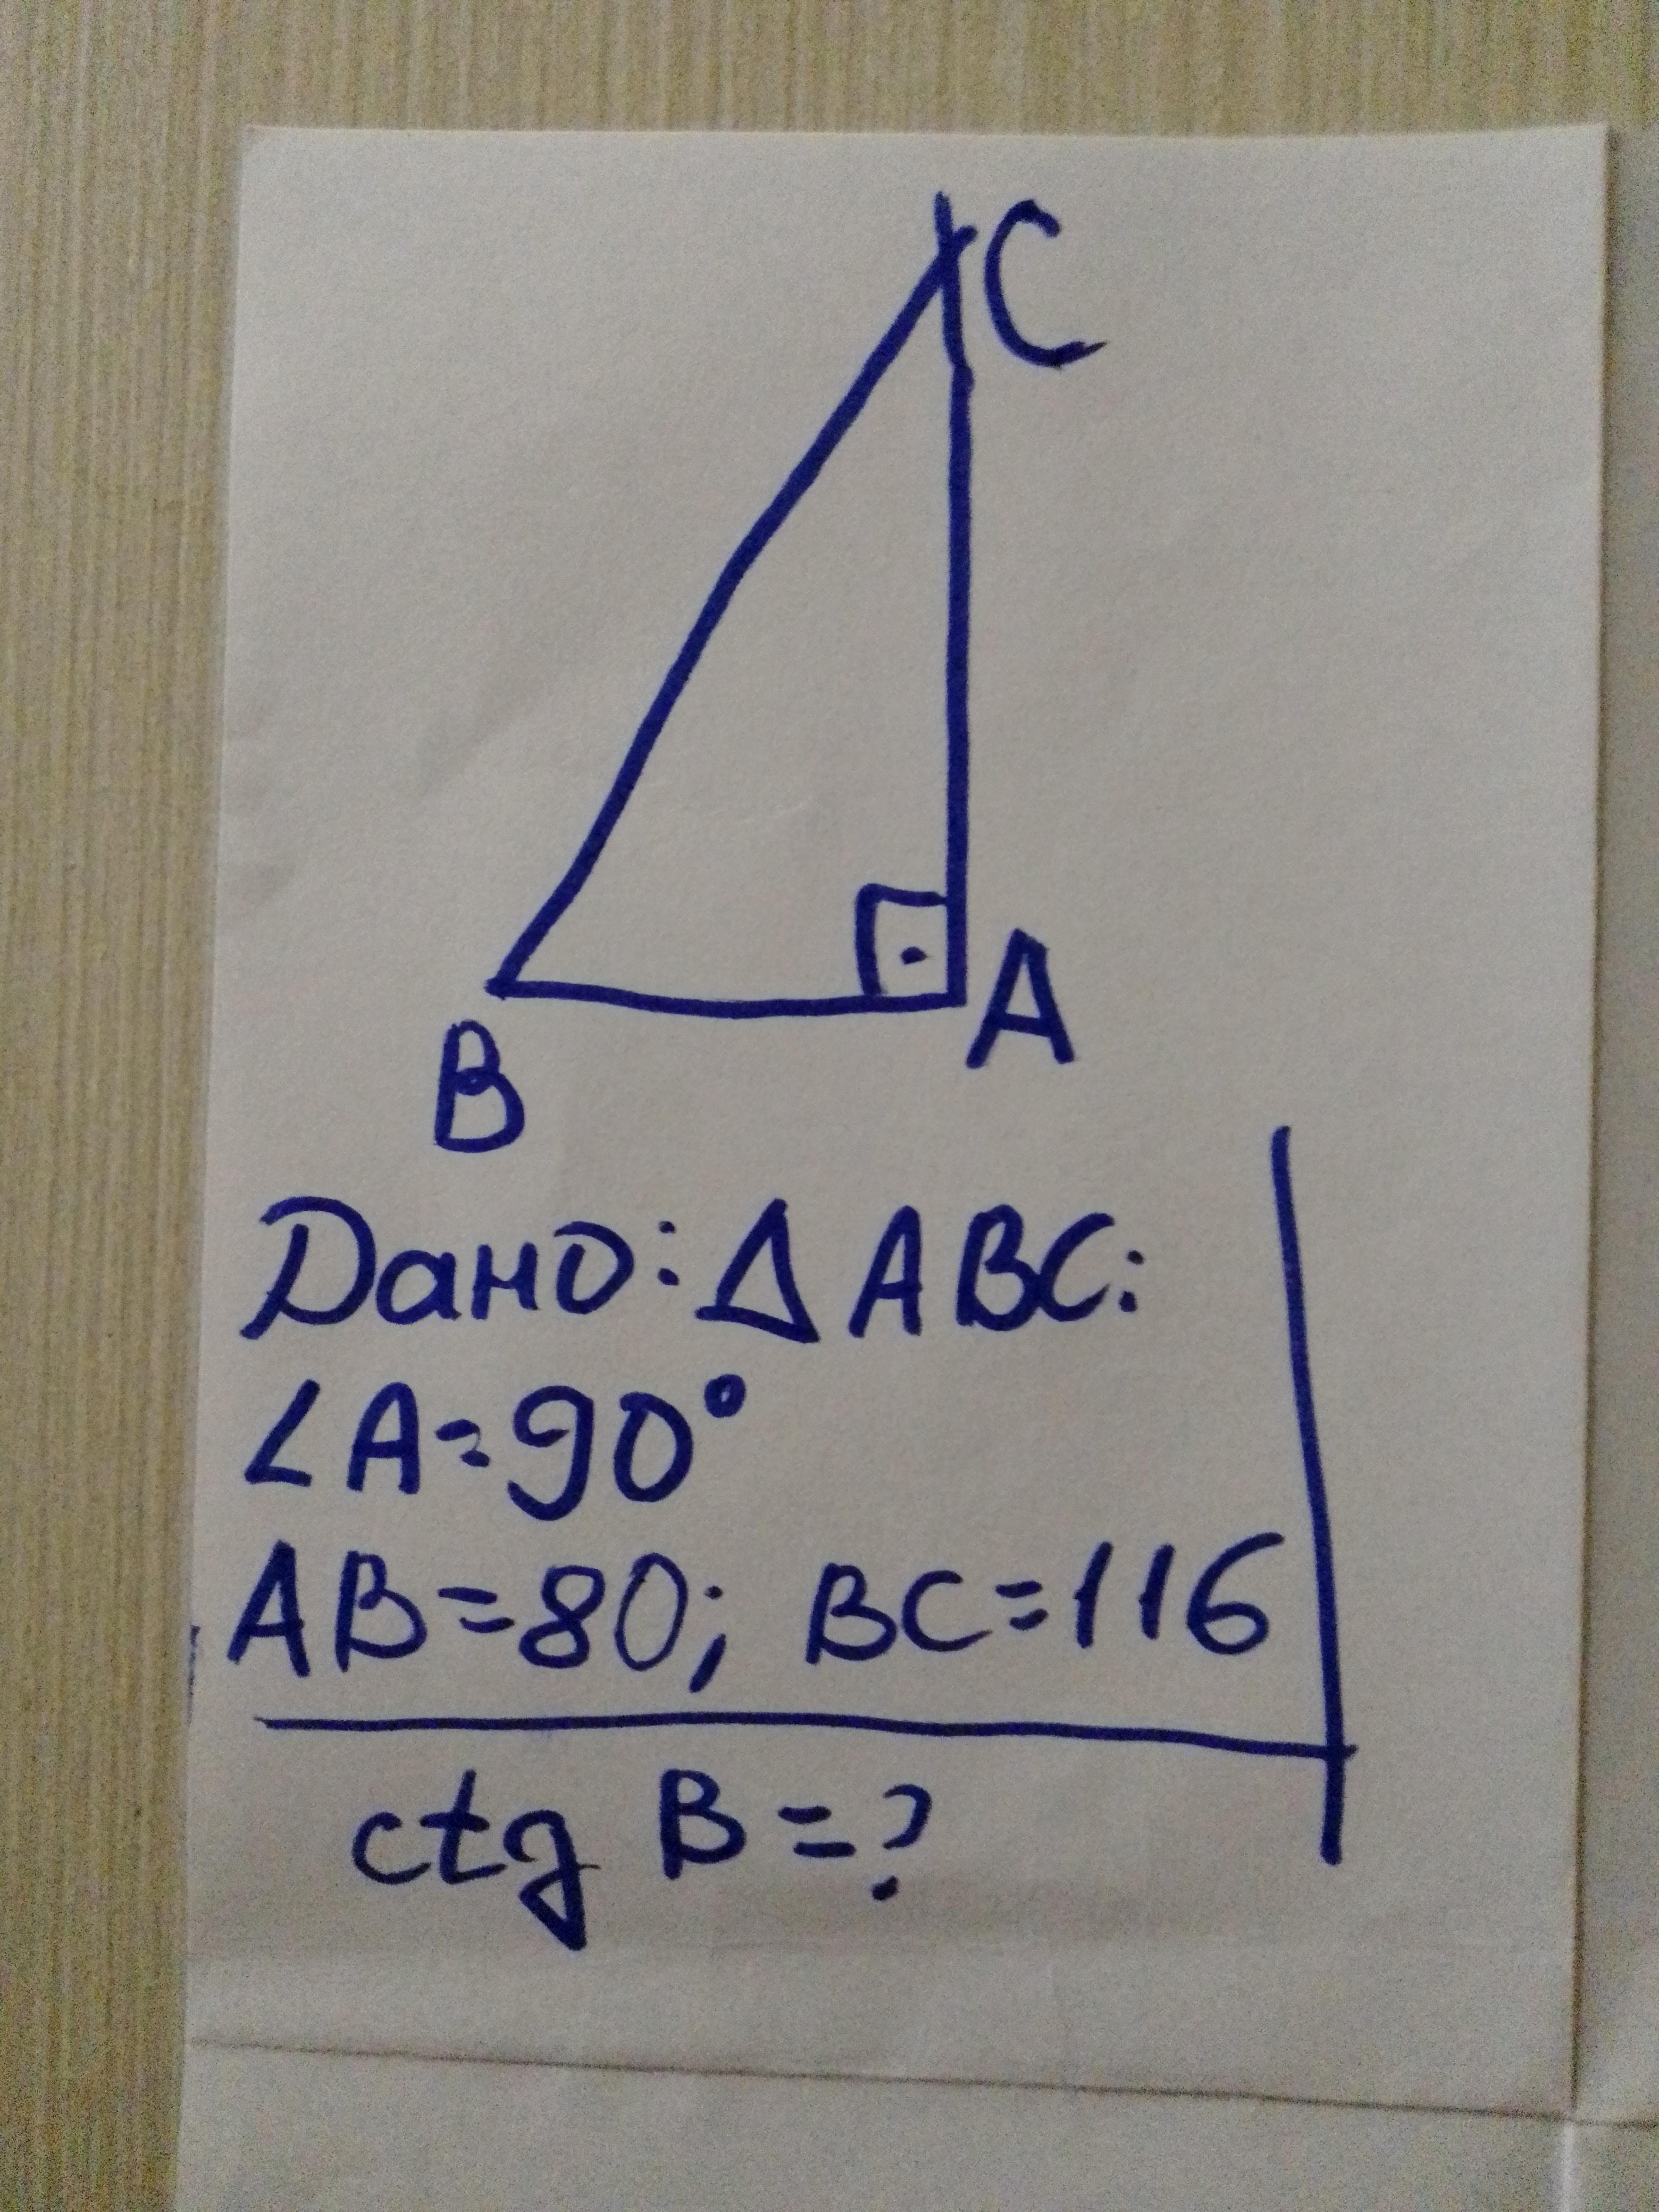 C
B
A
Дано: Δ ABC:
∠A=90°
AB=80; BC=116
ctg B=?